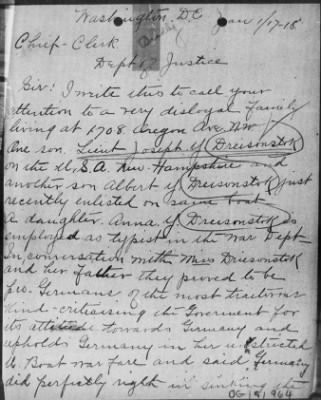 Washington, D.C. Jan 1/17-18
Chief-Clerk
Dept of Justice
Sir: I write this to call your
attention to a very disloyal family
living at 1708 Oregon Ave NW
One son. Lieut Joseph Y Dreisonstok
on the U.S.A. New-Hampshire and
another son Albert Y Dreisonstok just
recently enlisted on same boat
A daughter. Anna Y Dreisonstok is
employed as typist in the War Dept-
In conversation with Miss Driesonstok
and her father they proved to be
pro. Germans of the most traitorous
kind-critisising the Goverment for
its attitude towards Germany and
upholds Germany in her unrestricted
U. Boat war fare and said Germany
did perfectly right in sinking the
OG 181964